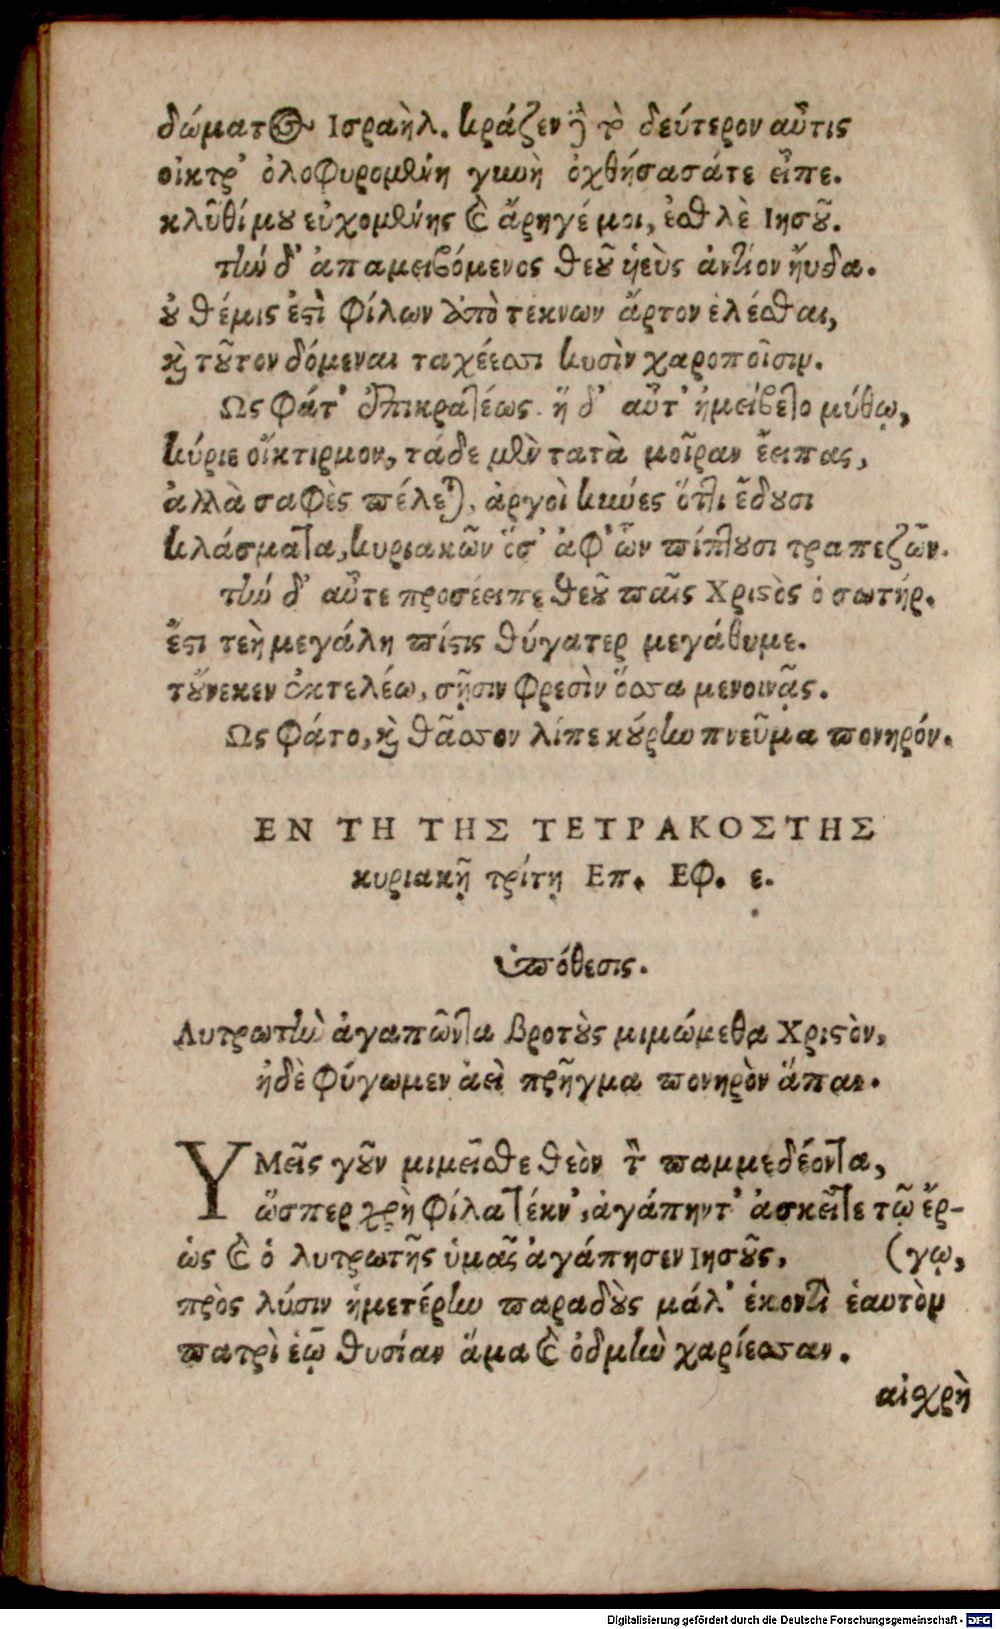 δώματος Ισραὴλ. κράζεν ἢ τὸ δεύτερον αὖτις
οἰκτρ' ὀλοφυρομένη γυνὴ ὀχθήσασάτε εἶπε.
κλῦθί μου εὐχομένης καὶ ἄρηγέ μοι, ἐσθλὲ Ιησοῦ.
τὴν δ' ἀπαμειβόμενος θεοῦ ἠεὺς ἀντίον ἤυδα.
οὐ θέμις ἐστὶ φίλων ἀπὸ τέκνων ἄρτον ἑλέσθαι,
καὶ τοῦτον δόμεναι ταχέεσσι κυσὶν χαροποῖσιν.
Ως φάτ' ἐπικρατέως. ἥ δ' αὖτ' ἠμείβετο μύθῳ,
κύριε οἴκτιρμον, τάδε μὲν τατὰ μοῖραν ἔειπας,
ἀλλὰ σαφὲς πέλεται, ἀργοὶ κύνες ὅττι ἔδουσι
κλάσματα, κυριακῶν ὅσ' ἀφ' ὧν πίπτουσι τραπεζῶν.
τὴν δ' αὖτε προσέειπε θεοῦ παῖς Χριστὸς ὁ σωτήρ.
ἔστι τεὴ μεγάλη πίστις θύγατερ μεγάθυμε.
τοὔνεκεν ἐκτελέω, σῇσιν φρεσὶν ὅσσα μενοινᾷς.
Ως φάτο, καὶ θᾶσσον λίπε κούρην πνεῦμα πονηρόν.
ΕΝ ΤΗ ΤΗΣ ΤΕΤΡΑΚΟΣΤΗΣ
κυριακῇ τρίτῃ Επ. Εφ. ε.
ὑπόθεσις.
Λυτρωτὴν ἀγαπῶντα βροτοὺς μιμώμεθα Χριστὸν,
ἠδὲ φύγωμεν ἀεὶ πρῆγμα πονηρὸν ἅπαν.
ΥΜεῖς γοῦν μιμεῖσθε θεὸν τὸν παμμεδέοντα,
ὥσπερ χρὴ φίλα τέκν', ἀγάπηντ' ἀσκεῖτε τῷ ἔρ-
ὡς καὶ ὁ λυτρωτῆς ὑμᾶς ἀγάπησεν Ιησοῦς, (γῳ,
πρὸς λύσιν ἡμετέρην παραδοὺς μάλ' ἑκοντὶ ἑαυτὸν
πατρὶ ἑῷ θυσίαν ἅμα καὶ ὀδμὴν χαρίεσσαν.
αἰχρὴ
Digitalisierung gefördert durch die Deutsche Forschungsgemeinschaft - DFG